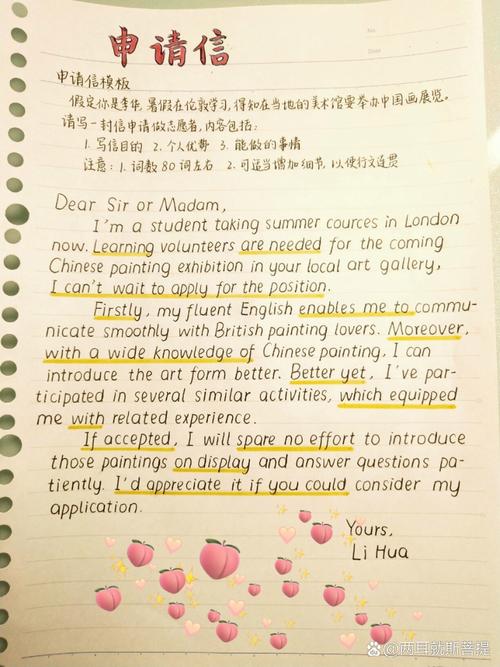 申请信
No.
Date
申请信模板
假定你是李华,暑假在伦敦学习,得知在当地的美术馆要举办中国画展览。
请写一封信申请做志愿者,内容包括:
1. 写信目的 2. 个人优势 3. 能做的事情
注意:1. 词数80词左右 2. 可适当增加细节,以使行文连贯
Dear Sir or Madam,
I'm a student taking summer cources in London
now. Learning volunteers are needed for the coming
Chinese painting exhibition in your local art gallery,
I can't wait to apply for the position.
Firstly, my fluent English enables me to commu-
nicate smoothly with British painting lovers. Moreover,
with a wide knowledge of Chinese painting, I can
introduce the art form better. Better yet, I've par-
ticipated in several similar activities, which equipped
me with related experience.
If accepted, I will spare no effort to introduce
those paintings on display and answer questions pa-
tiently. I'd appreciate it if you could consider my
application.
Yours,
Li Hua
@两耳就斯菩提